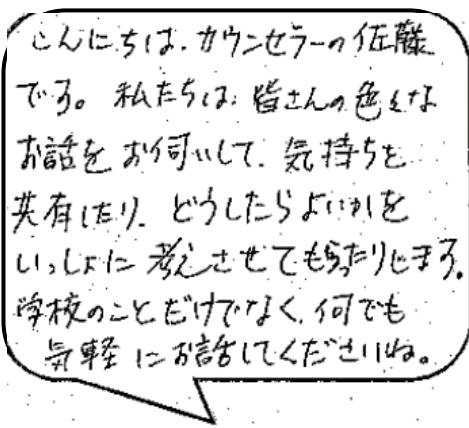 こんにちは、カウンセラーの佐藤
です。私たちは、皆さんの色々な
お話をお伺いして、気持ちを
共有したり、どうしたらよいかを
いっしょに考えさせてもらったりします。
学校のことだけでなく、何でも
気軽にお話してくださいね。